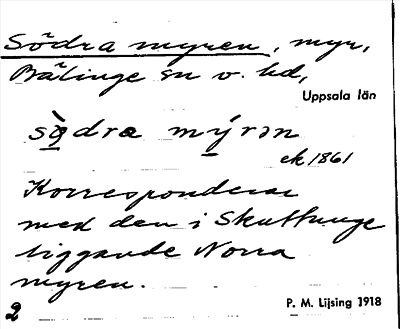 Södra myren, myr,
Bälinge sn o. hd,
Uppsala län
södra myrən
ek 1861
Korresponderar
med den i Skuttunge
liggande Norra
myren.
P. M. Lijsing 1918
2